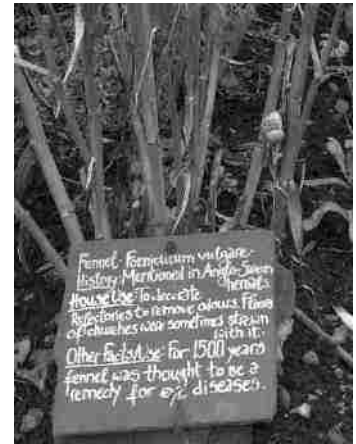 Fennel - Foeniculum vulgare
History: Mentioned in Anglo-Saxon
herbals.
House Use: To decorate
Refectories to remove odours. Floors
of churches wear sometimes strewn
with it.
Other Facts/Use: For 1500 years
fennel was thought to be a
remedy for eye diseases.